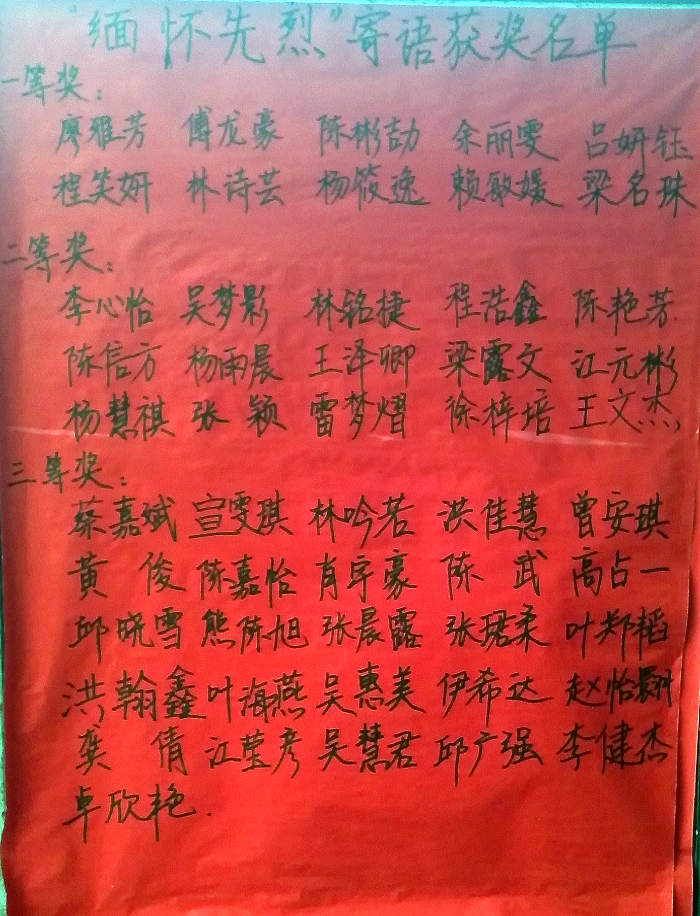 “缅怀先烈”寄语获奖名单
一等奖：
廖雅芳 傅龙豪 陈彬劼 余丽雯 吕妍钰
程笑妍 林诗芸 杨筱逸 赖敏媛 梁名珠
二等奖：
李心怡 吴梦影 林铭捷 程浩鑫 陈艳芳
陈信方 杨雨晨 王泽卿 梁露文 江元彬
杨慧祺 张颖 雷梦熠 徐梓培 王文杰
三等奖：
蔡嘉斌 宣雯琪 林吟若 洪佳慧 曾安琪
黄俊 陈嘉怡 肖宇豪 陈武 高占一
邱晓雪 熊陈旭 张晨露 张珺柔 叶郑韬
洪翰鑫 叶海燕 吴惠美 伊希达 赵怡
龚倩 江莹彦 吴慧君 邱广强 李健杰
卓欣艳.